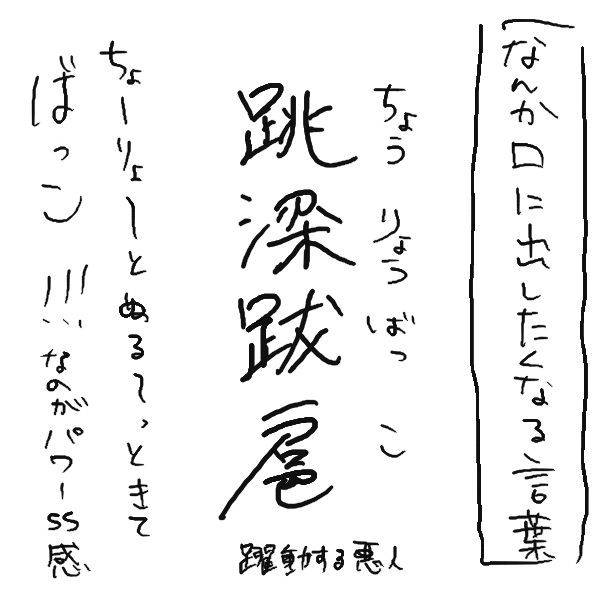 なんか口に出したくなる言葉
ちょうりょうばっこ
跳梁跋扈
躍動する悪人
ちょーりょーとぬるくっときて
ばっこ!!!なのがパワーss感